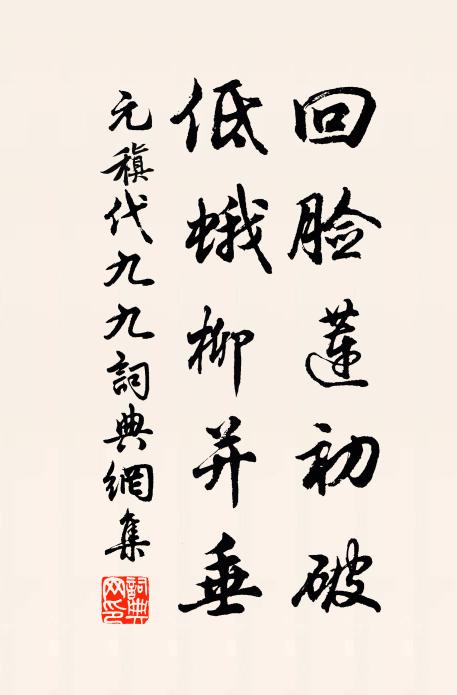 回脸蓮初破
低蛾柳并垂
元稹代九九詞典網集
詞典
网印